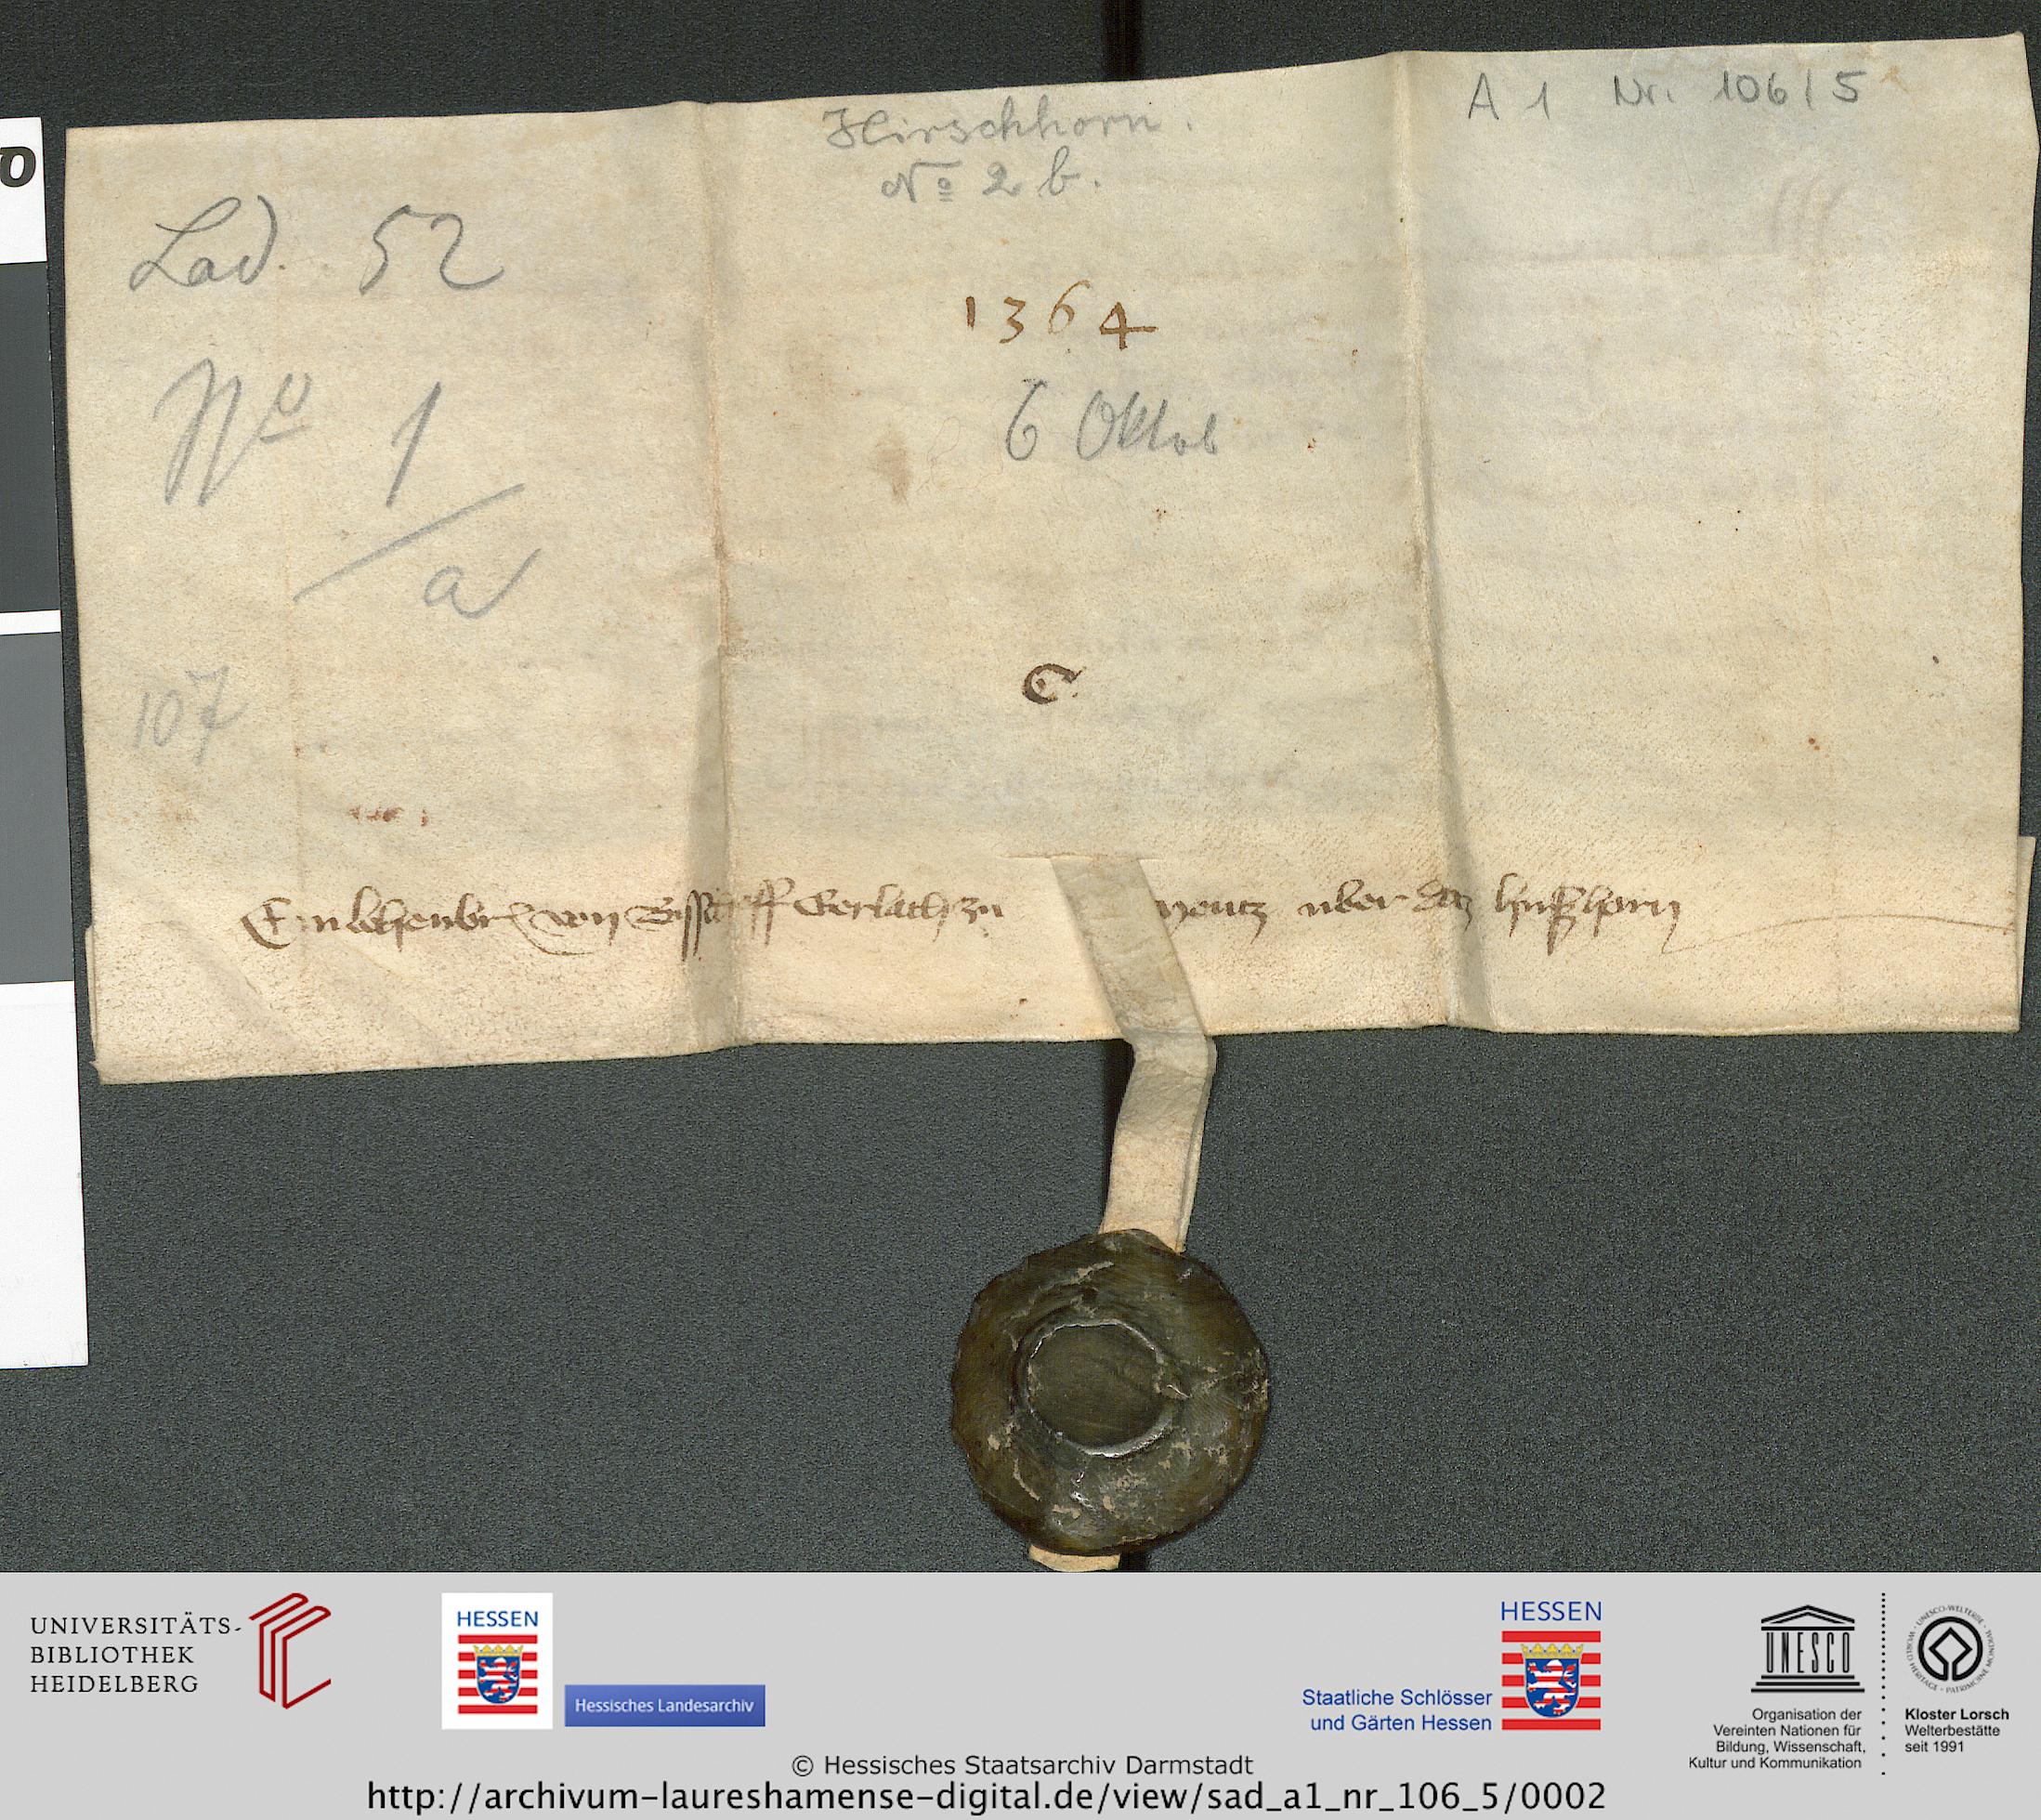 A 1 Nr. 106/5
Hirschhorn.
No 2 b.
Lad. 52
1364
No 1/a
6 Oktob
C
107
Ein lehenbr von Bisscoff Gerlach zu Mentz uber daz hußhorn
UNIVERSITÄTS-
BIBLIOTHEK
HEIDELBERG
HESSEN
Hessisches Landesarchiv
HESSEN
Staatliche Schlösser
und Gärten Hessen
UNESCO
Organisation der
Vereinten Nationen für
Bildung, Wissenschaft,
Kultur und Kommunikation
Kloster Lorsch
Welterbestätte
seit 1991
© Hessisches Staatsarchiv Darmstadt
http://archivum-laureshamense-digital.de/view/sad_a1_nr_106_5/0002